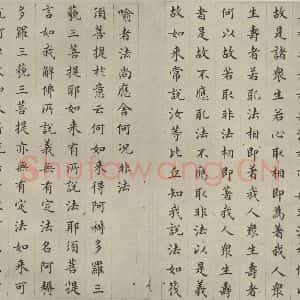 故是諸衆生若心取相即為著我人衆
生壽者若取法相即著我人衆生壽者
何以故若取非法相即著我人衆生壽
者是故不應取法不應取非法以是義
故如來常說汝等比丘知我說法如筏
喻者法尚應舍何況非法
須菩提於意云何如來得阿耨多羅三
藐三菩提耶如來有所說法耶須菩提
言如我解佛所說義無有定法名阿耨
多羅三藐三菩提亦無有定法如來可
Shufawang.CN